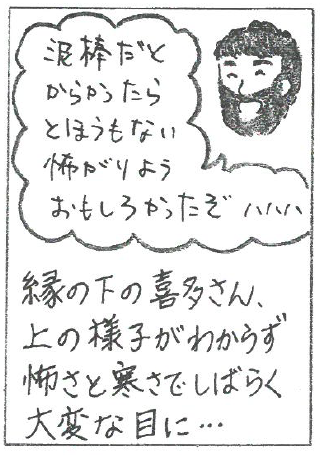 泥棒だと
からかったら
とほうもない
怖がりよう
おもしろかったぞ ハハハ
縁の下の喜多さん、
上の様子がわからず
怖さと寒さでしばらく
大変な目に…